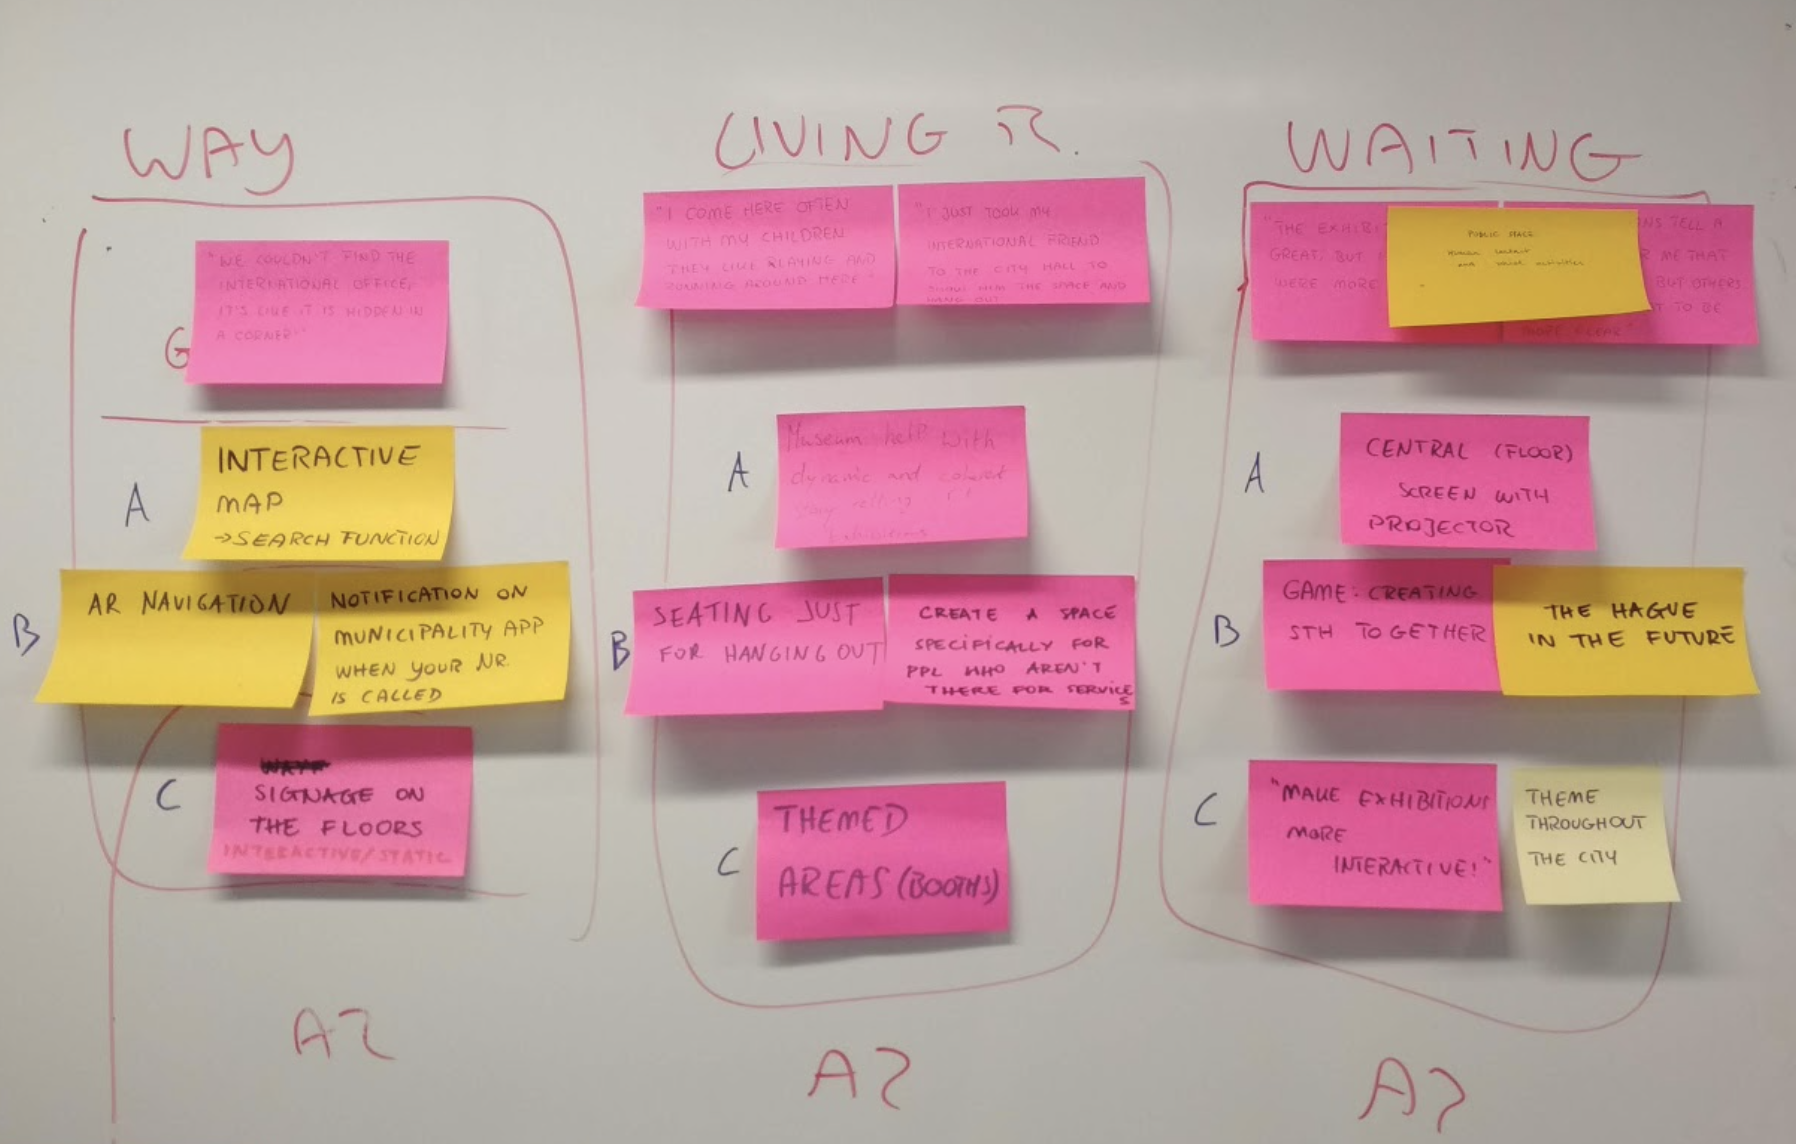 WAY
"WE COULDN'T FIND THE
INTERNATIONAL OFFICE,
IT'S LIKE IT IS HIDDEN IN
A CORNER"
G
A
INTERACTIVE
MAP
→SEARCH FUNCTION
B
AR NAVIGATION
NOTIFICATION ON
MUNICIPALITY APP
WHEN YOUR NR.
IS CALLED
C
SIGNAGE ON
THE FLOORS
INTERACTIVE/STATIC
A2
LIVING R.
"I COME HERE OFTEN
WITH MY CHILDREN
THEY LIKE PLAYING AND
RUNNING AROUND HERE"
"I JUST TOOK MY
INTERNATIONAL FRIEND
TO THE CITY HALL TO
SHOW HIM THE SPACE AND
HANG OUT
A
Museum help with
dynamic and coherent
story telling
B
SEATING JUST
FOR HANGING OUT
CREATE A SPACE
SPECIFICALLY FOR
PPL WHO AREN'T
THERE FOR SERVICES
C
THEMED
AREAS (BOOTHS)
A2
WAITING
"THE EXHIBI
GREAT, BUT I
WERE MORE
PUBLIC SPACE
and social activities
NS TELL A
R ME THAT
BUT OTHERS
TO BE
MORE CLEAR"
A
CENTRAL (FLOOR)
SCREEN WITH
PROJECTOR
B
GAME: CREATING
STH TOGETHER
THE HAGUE
IN THE FUTURE
C
"MAKE EXHIBITIONS
MORE
INTERACTIVE!"
THEME
THROUGHOUT
THE CITY
A2